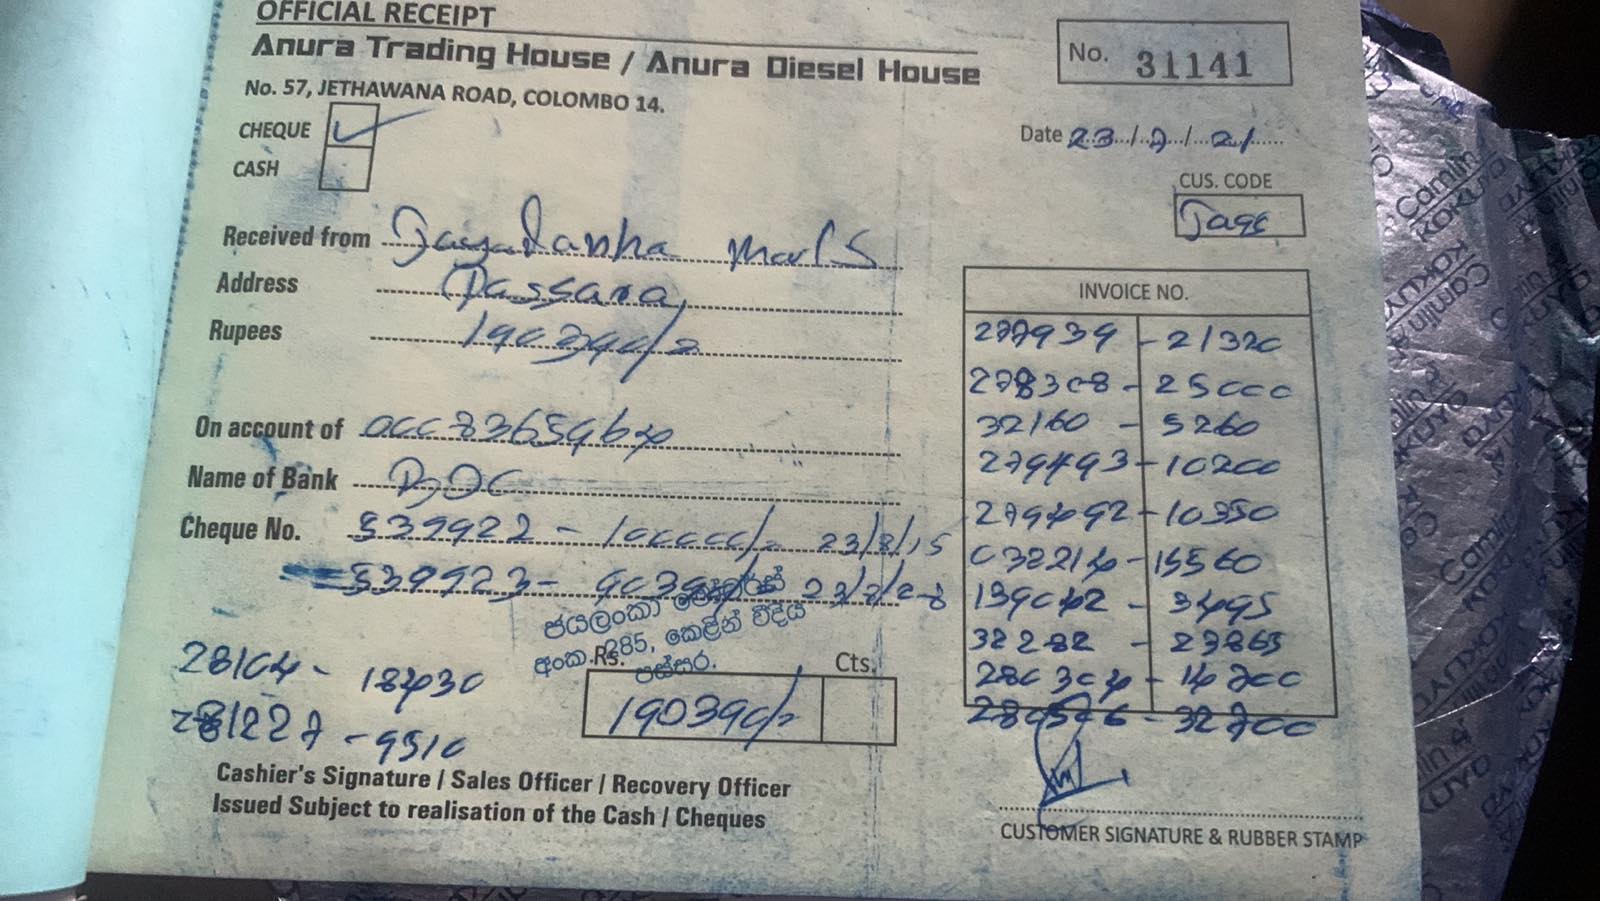 OFFICIAL RECEIPT
Anura Trading House / Anura Diesel House
No. 57, JETHAWANA ROAD, COLOMBO 14.
No. 31141
CHEQUE ✓
CASH
Date 23/2/21
CUS. CODE
Received from
Address Passara,
Rupees 190390/=
On account of acc 83659640
Name of Bank BOC
Cheque No. 539922 - 100000/= 23/8/15
539923 - 90390/=
ජයලංකා මෝටර්ස්
අංක. 285, කෙළින් වීදිය
පස්සර.
INVOICE NO.
277939 - 21320
278308 - 25000
32160 - 5260
279493 - 10200
279492 - 10350
032214 - 15560
139042 - 3495
32282 - 27865
280304 - 14200
32700
28104 - 18430
281227 - 9510
Rs. Cts.
190390/=
Cashier's Signature / Sales Officer / Recovery Officer
Issued Subject to realisation of the Cash / Cheques
CUSTOMER SIGNATURE & RUBBER STAMP
Camlin
KOKUYO